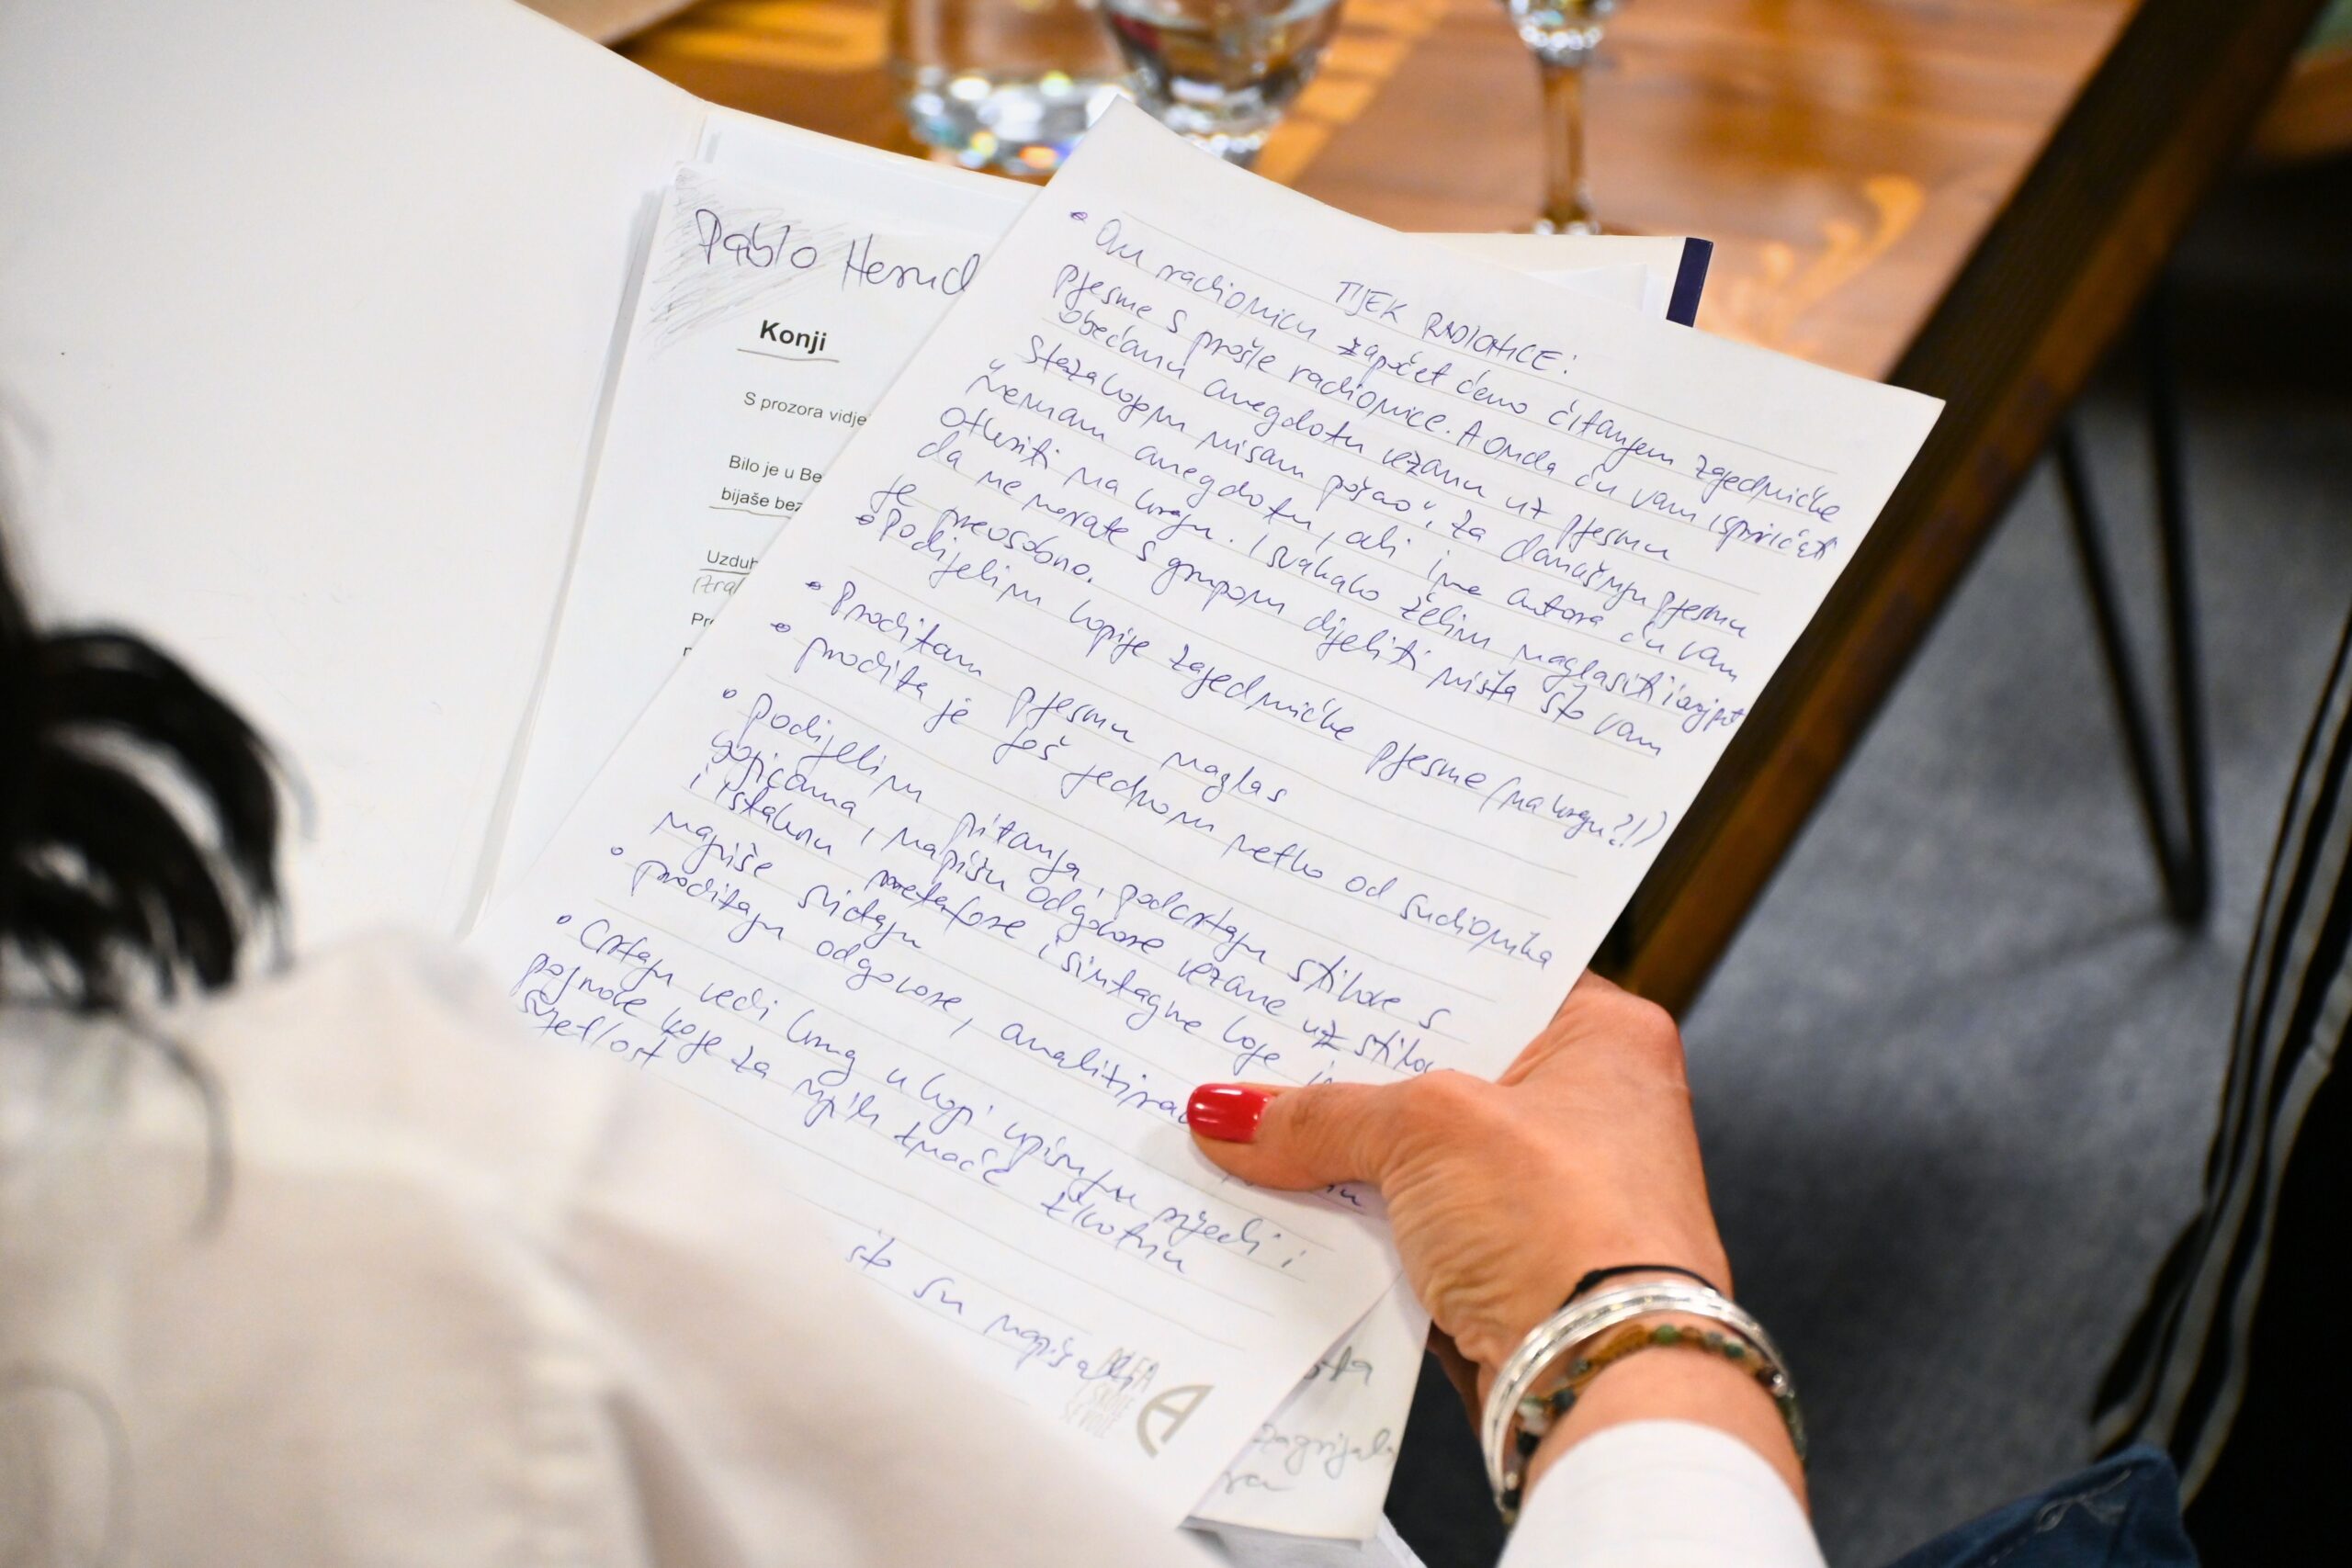 Pablo Nerud
Konji
S prozora vidje
Bilo je u Be
bijaše bez
Uzduh
(zra
Pr
TIJEK RADIONICE:
• Ovu radionicu započet ćemo čitanjem zajedničke
pjesme s prošle radionice. A onda ću vam ispričati
obećanu anegdotu vezanu uz pjesmu
"Staza kojom nisam pošao", za današnju pjesmu
nemam anegdotu, ali ime autora ću vam
otkriti na kraju. I svakako želim naglasiti
da ne morate s grupom dijeliti ništa što vam
je preosobno.
• Podijelim kopije zajedničke pjesme (na kraju?!)
• Pročitam pjesmu naglas
• pročita je još jednom netko od sudionika
• podijelim pitanja, podcrtaju stihove s
bojicama, napišu odgovore vezane uz stihov
i istaknu metafore i sintagme koje i
najviše sviđaju
• pročitaju odgovore, analizira
• Crtaju veći krug u koji upisuju riječi i
pojmove koje za njih znače životnu
svjetlost
što su napisali
zagrijal